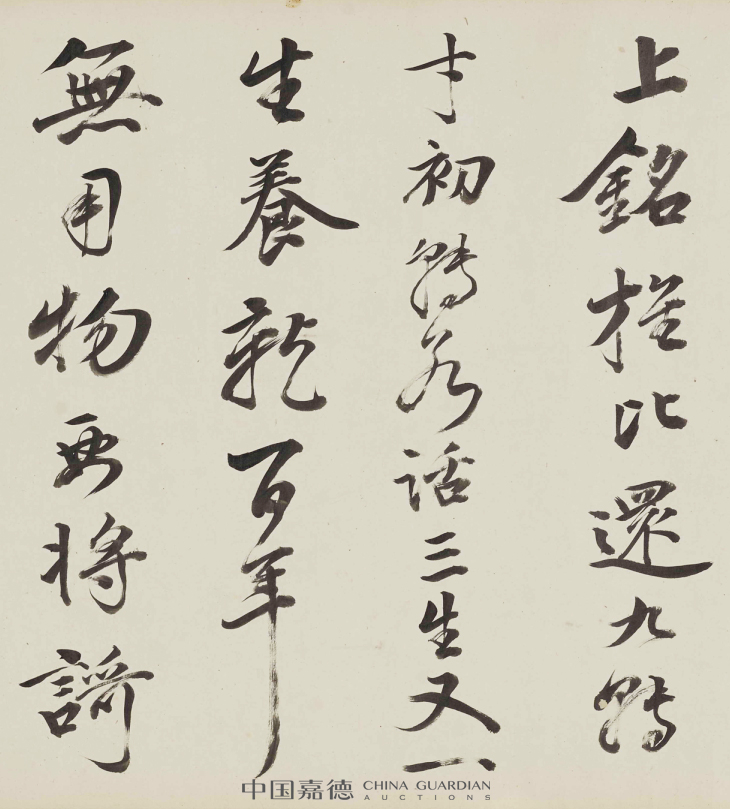 上銘旌比還九轉
才初轉若話三生又一
生養就百年
無用物要將
中国嘉德 CHINA GUARDIAN
AUCTIONS